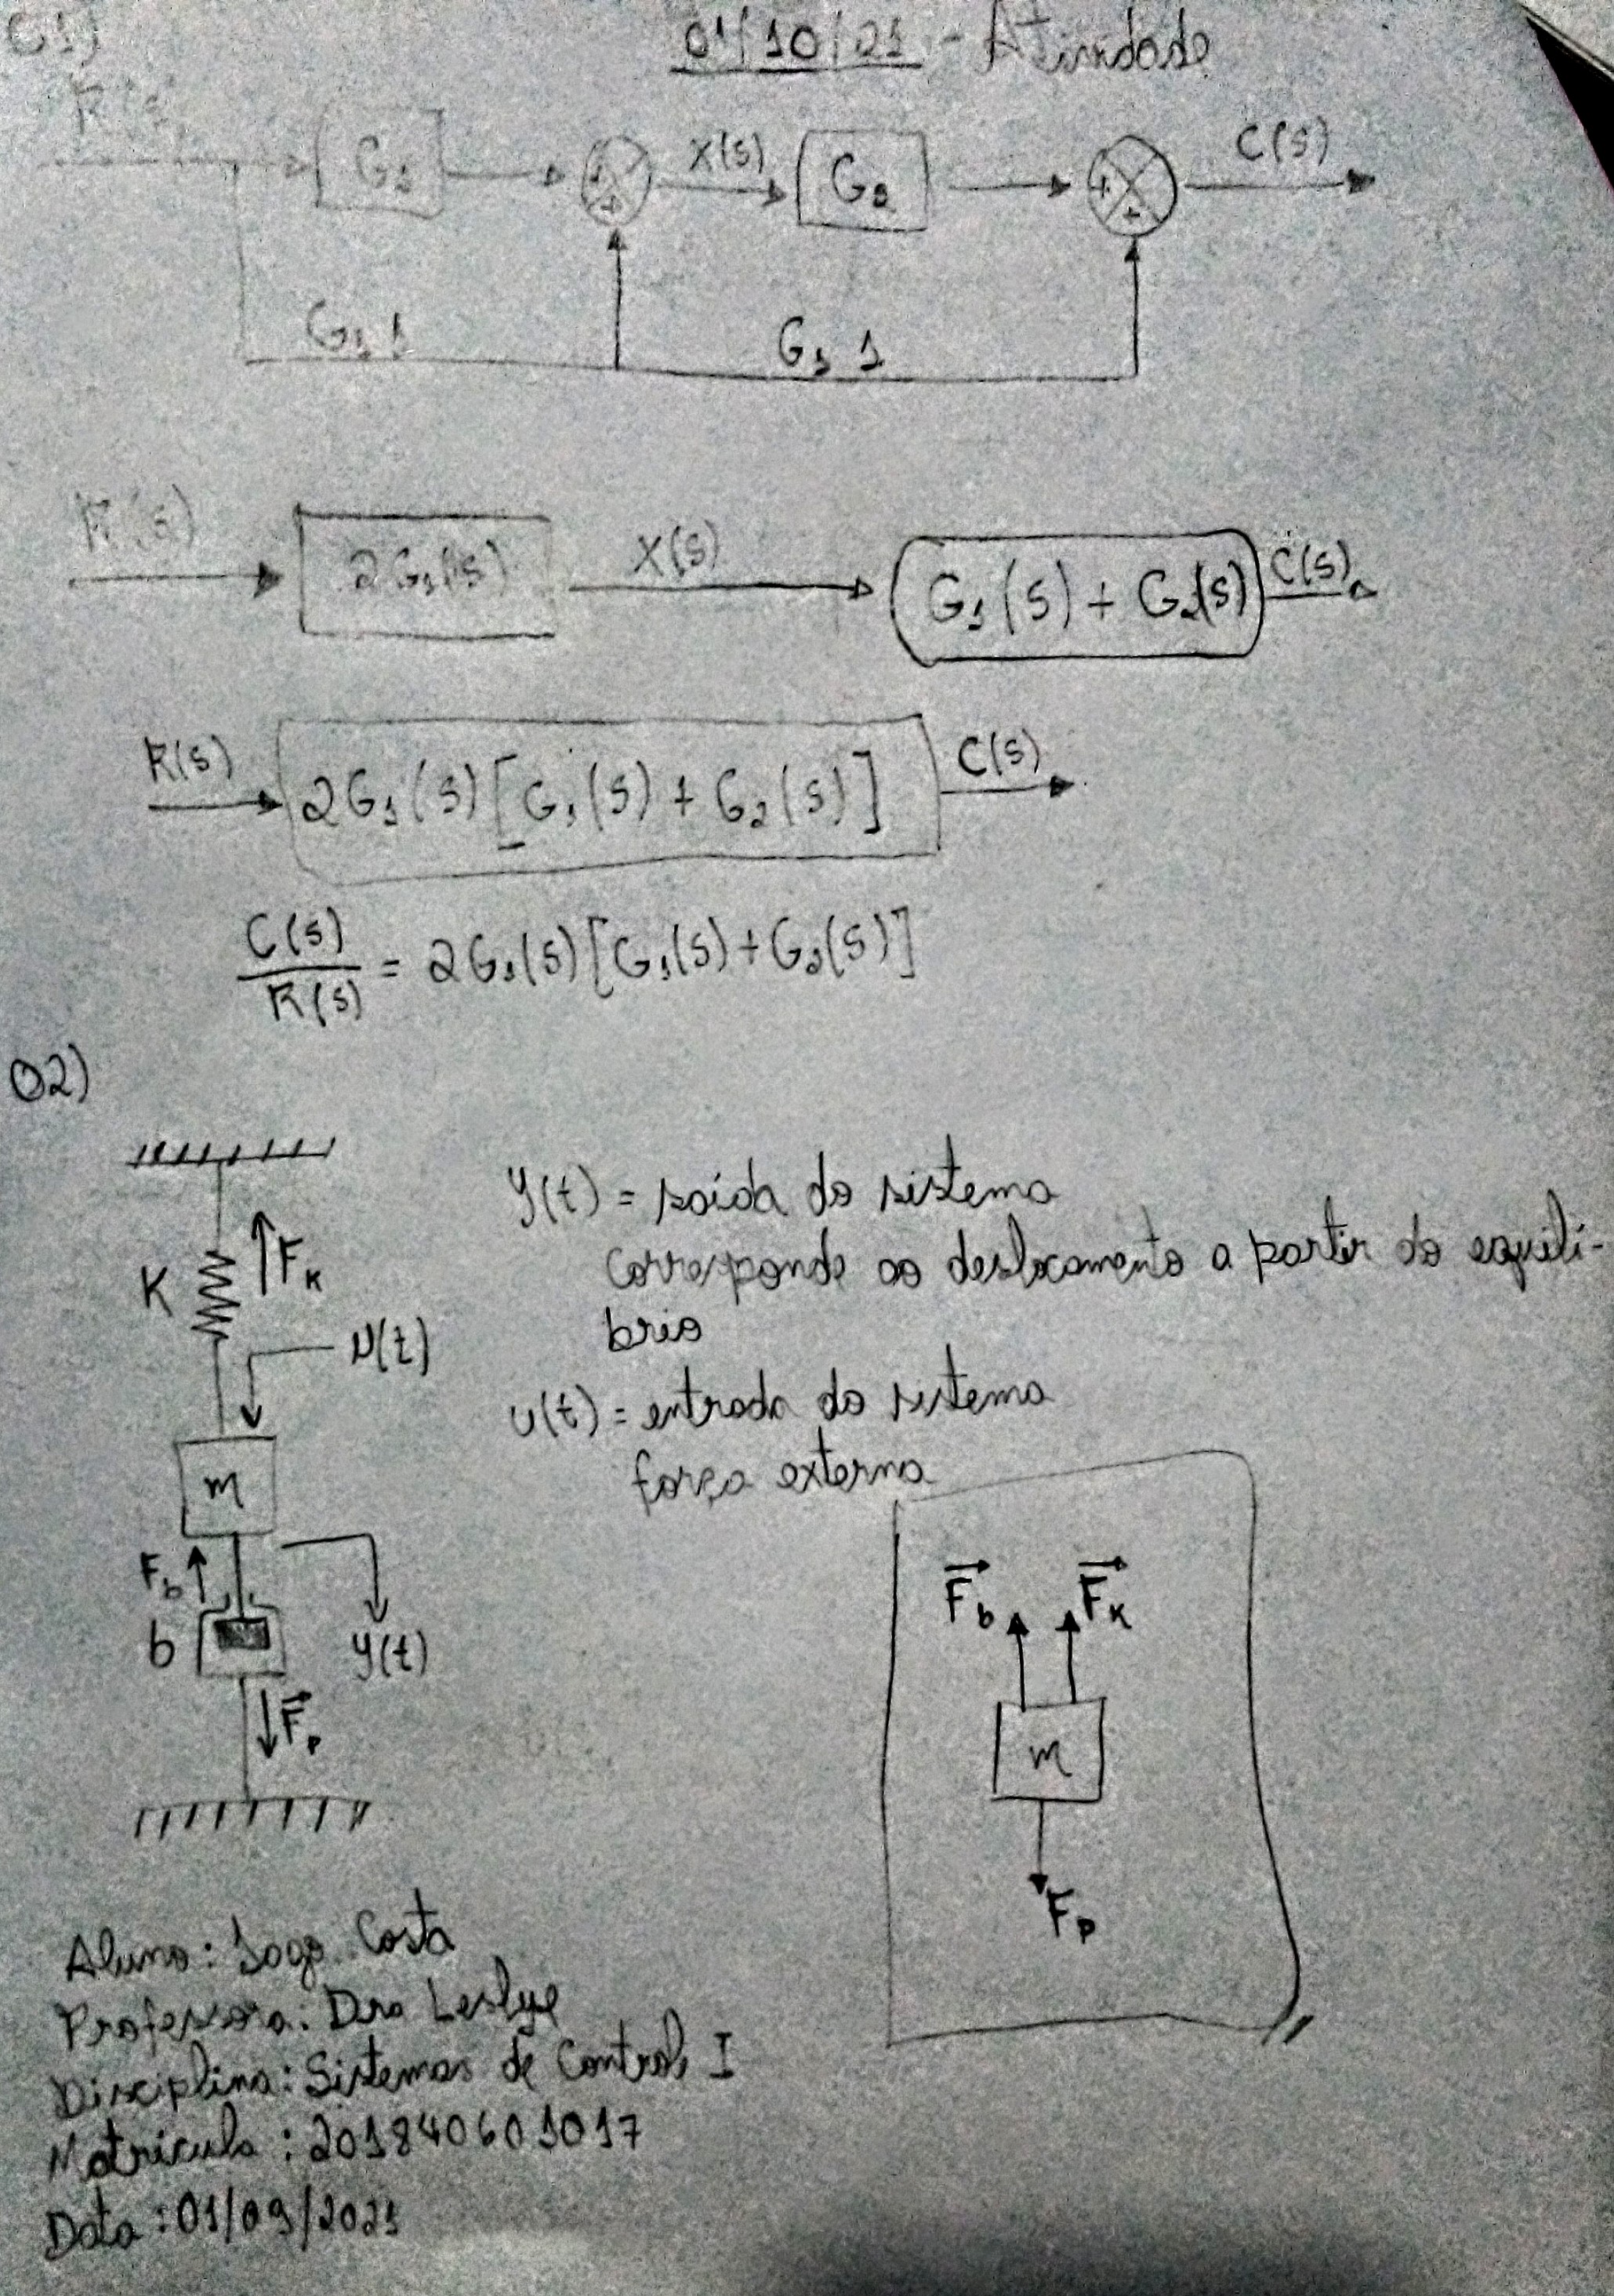 01)
01/10/21 - Atividade
R(s)
G1
X(s)
G2
C(s)
+
+
+
+
G1 1
G1 1
R(s)
2G1(s)
X(s)
G1(s) + G2(s)
C(s)
R(s)
2G1(s)[G1(s) + G2(s)]
C(s)
C(s)/R(s) = 2G1(s)[G1(s)+G2(s)]
02)
K
Fk
u(t)
m
Fb
b
y(t)
Fp
y(t) = saída do sistema
corresponde ao deslocamento a partir do equilí-
brio
u(t) = entrada do sistema
força externa
Fb
Fk
m
Fp
Aluno: Iago Costa
Professora: Dra Leslye
Disciplina: Sistemas de Controle I
Matrícula: 201840601017
Data: 01/09/2021